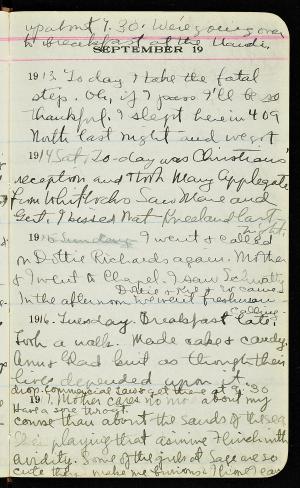 up about 7.30. We're going over
to breakfast at the
SEPTEMBER 19
1913 To day I take the fatal
step. Oh, if I pass I'll be so
thankful. I slept here in 409
North last night and we got
1914 Sat. To-day was Christians'
reception and I took Mary Applegate
from Whitlocks Saw Marie and
Gert. I missed Nat party
night.
1915 Sunday. I went & called
on Dottie Richards again. Mother
& I went to Chapel. I saw
Dottie &
In the afternoon we went freshman
calling.
1916. Tuesday. Breakfast late.
Took a walk. Made cake & candy.
Ann & Glad but as through their
lives depended upon it.
drop. Commercial Law get there at 9.30
1917 Mother cares no more about my
Have a sore throat.
course than about the sands of the sea
She is playing that as in we Flinch with
avidity. Some of the girls at Sage are so
cute they make me furious